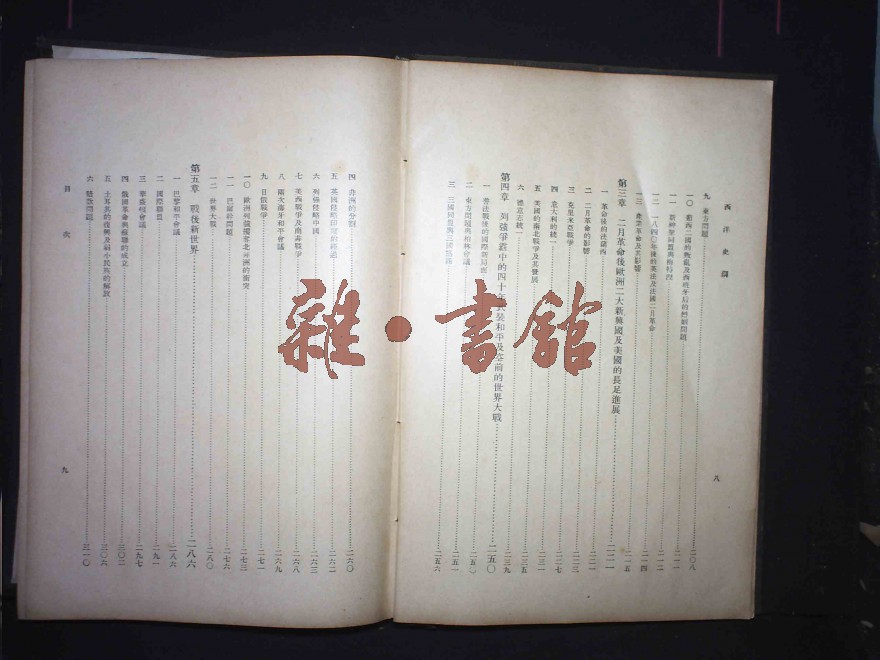 西洋史綱
八
九 東方問題……二〇八
一〇 葡西二國的叛亂及西班牙后的婚姻問題……二一一
一一 新神聖同盟與梅特涅……二一二
一二 一八四〇年後的英法及法國二月革命……二一四
一三 產業革命及其影響……二一五
第三章 二月革命後歐洲二大新興國及美國的長足進展……二二一
一 革命後的法蘭西……二二一
二 二月革命的影響……二二二
三 克里米亞戰爭……二二三
四 意大利的統一……二二七
五 美國的南北戰爭及其發展……二三一
六 德意志統一……二三五
第四章 列強爭霸中的四十年武裝和平及空前的世界大戰……二五〇
一 普法戰後的國際新局面
二 東方問題與柏林會議……二五〇
三 三國同盟與三國協商……二五六
四 非洲的分割……二六〇
五 英國侵略印度的經過……二六二
六 列強侵略中國……二六三
七 美西戰爭及南非戰爭……二六八
八 兩次海牙和平會議……二六九
九 日俄戰爭……二七一
一〇 歐洲列強獨奪北非洲的衝突……二七三
一一 巴爾幹問題……二七六
一二 世界大戰……二八〇
第五章 戰後新世界……二八六
一 巴黎和平會議……二八六
二 國際聯盟……二九一
三 華盛頓會議……二九七
四 俄國革命與蘇聯的成立……三〇二
五 土耳其的復興及弱小民族的解放……三〇六
六 賠款問題……三一〇
目次
九
雜·書館